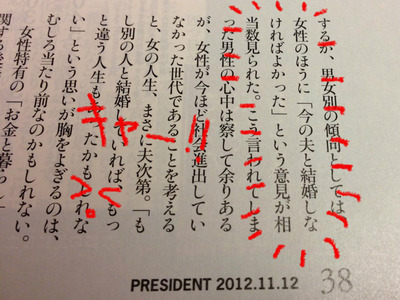 するか、男女別の傾向としては、
女性のほうに「今の夫と結婚しな
ければよかった」という意見が相
当数見られた。こう言われてしま
った男性の心中は察して余りある
が、女性が今ほど社会進出してい
なかった世代であることを考える
と、女の人生、まさに夫次第。「も
し別の人と結婚していれば、もっ
と違う人生もあったかもしれな
い」という思いが胸をよぎるのは、
むしろ当たり前なのかもしれない。
女性特有の「お金と暮らし」
関する
キャー!!
と。
PRESIDENT 2012.11.12
38